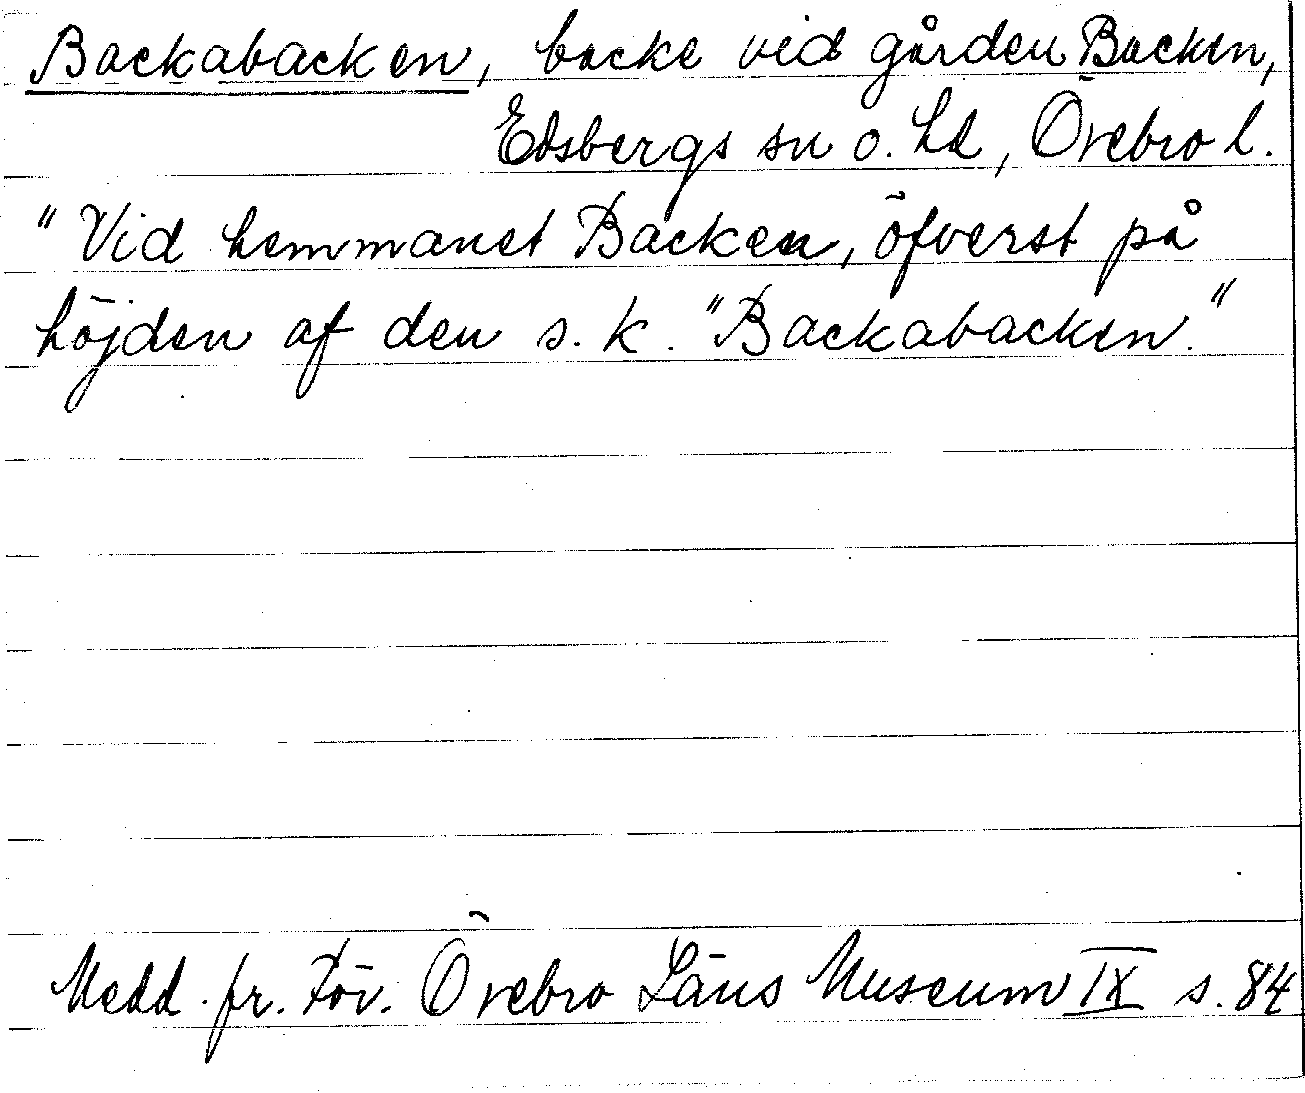 Backabacken, backe vid gården Backen,
Edsbergs sn o. hd, Örebro l.
"Vid hemmanet Backen, öfverst på
höjden af den s.k. "Backabacken."
Medd. fr. För. Örebro Läns Museum IX s. 84